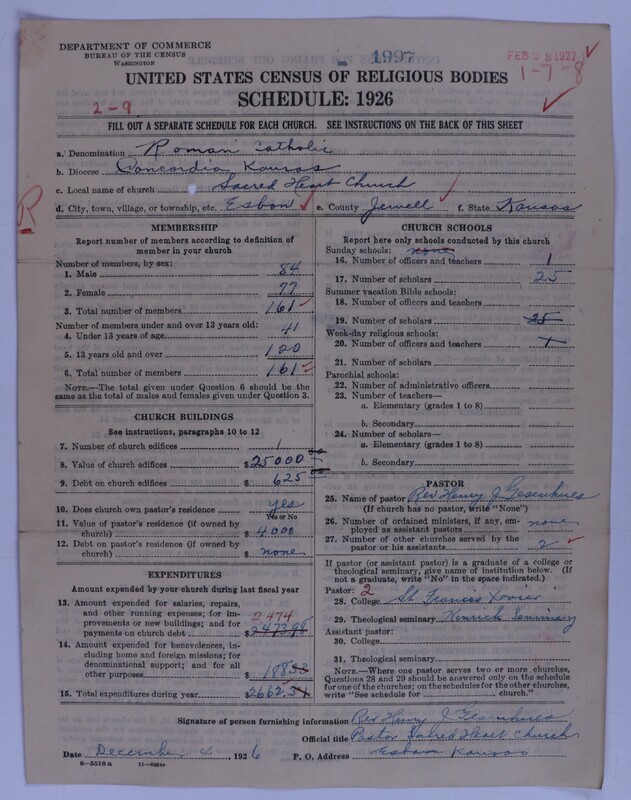 DEPARTMENT OF COMMERCE
BUREAU OF THE CENSUS
WASHINGTON
1997
FEB 28 1927
1-7-8
UNITED STATES CENSUS OF RELIGIOUS BODIES
SCHEDULE: 1926
2-9
FILL OUT A SEPARATE SCHEDULE FOR EACH CHURCH. SEE INSTRUCTIONS ON THE BACK OF THIS SHEET
a. Denomination Roman Catholic
b. Diocese Concordia, Kansas
c. Local name of church Sacred Heart Church
d. City, town, village, or township, etc. Esbon e. County Jewell f. State Kansas
R
MEMBERSHIP
Report number of members according to definition of
member in your church
Number of members, by sex:
1. Male 84
2. Female 77
3. Total number of members 161
Number of members under and over 13 years old:
4. Under 13 years of age 41
5. 13 years old and over 120
6. Total number of members 161
NOTE.—The total given under Question 6 should be the
same as the total of males and females given under Question 3.
CHURCH BUILDINGS
See instructions, paragraphs 10 to 12
7. Number of church edifices 1
8. Value of church edifices $25000 00
9. Debt on church edifices $ 625 00
10. Does church own pastor's residence? yes
Yes or No
11. Value of pastor's residence (if owned by
church) $ 4000
12. Debt on pastor's residence (if owned by
church) $ none
EXPENDITURES
Amount expended by church during last fiscal year
13. Amount expended for salaries, repairs,
and other running expenses; for im-
provements or new buildings; and for
payments on church debt $ 2473.98
2474
14. Amount expended for benevolences, in-
cluding home and foreign missions; for
denominational support; and for all
other purposes $ 188
15. Total expenditures during year $2662
CHURCH SCHOOLS
Report here only schools conducted by this church
Sunday schools: none
16. Number of officers and teachers 1
17. Number of scholars 25
Summer vacation Bible schools:
18. Number of officers and teachers
19. Number of scholars 25
Week-day religious schools:
20. Number of officers and teachers 1
21. Number of scholars
Parochial schools:
22. Number of administrative officers
23. Number of teachers—
a. Elementary (grades 1 to 8)
b. Secondary
24. Number of scholars—
a. Elementary (grades 1 to 8)
b. Secondary
PASTOR
25. Name of pastor Rev Henry J Gesenhues
(If church has no pastor, write "None")
26. Number of ordained ministers, if any, em-
ployed as assistant pastors none
27. Number of other churches served by the
pastor or his assistants 2
If pastor (or assistant pastor) is a graduate of a college or
theological seminary, give name of institution below. (If
not a graduate, write "No" in the space indicated.)
Pastor: 2
28. College St Francis Xavier
29. Theological seminary Kenrick Seminary
Assistant pastor:
30. College
31. Theological seminary
NOTE.—Where one pastor serves two or more churches,
Questions 28 and 29 should be answered only on the schedule
for one of the churches; on the schedules for the other churches,
write "See schedule for church."
Signature of person furnishing information Rev Henry J Gesenhues
Official title Pastor Sacred Heart Church
Date December 4, 1926 P. O. Address Esbon Kansas
8—5518 a